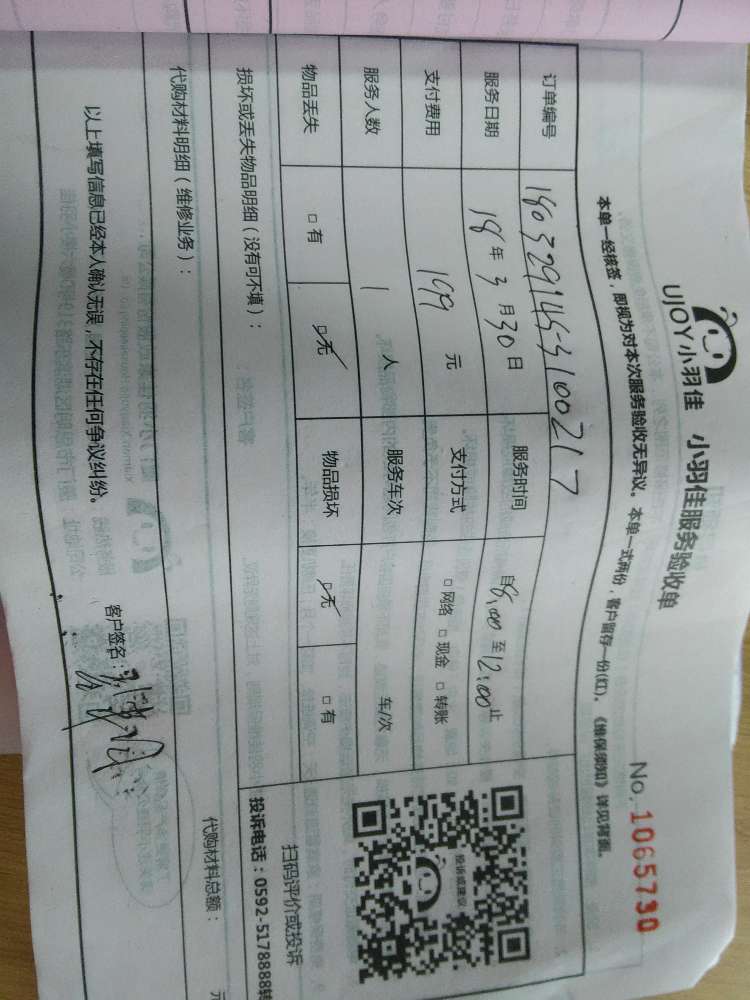 UJOY小羽佳 小羽佳服务验收单
No. 1065730
本单一经核签，即视为对本次服务验收无异议。本单一式两份，客户留存一份(红)。《维保须知》详见背面。
订单编号 180329145-3100217
服务日期 18年3月30日 服务时间 自8:00至12:00止
支付费用 199元 支付方式 □网络 □现金 □转账
服务人数 1人 服务车次 车/次
物品丢失 □有 □无 物品损坏 □无 □有
损坏或丢失物品明细（没有可不填）：
代购材料明细（维修业务）：
代购材料总额： 元
以上填写信息已经本人确认无误，不存在任何争议纠纷。
客户签名：
投诉或建议
扫码评价或投诉
投诉电话：0592-5178888转